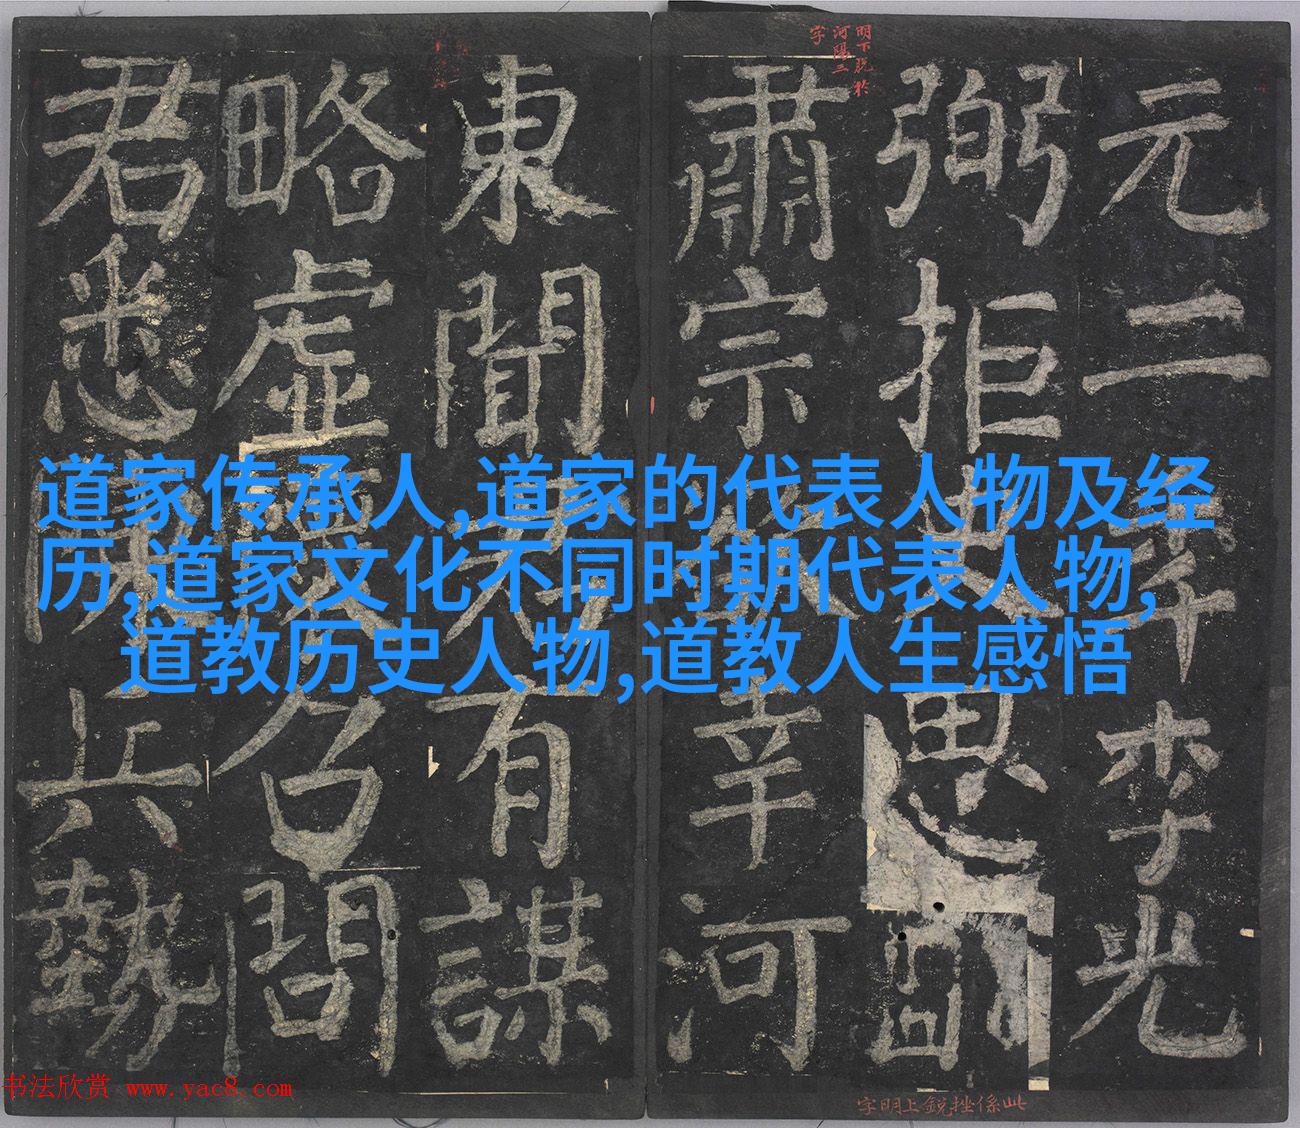 元二年李光
弼拒史思明
肅宗將幸河
東聞君有謀
略虛懷召問
君悉陳兵勢
明下脱於
河陽三
字
此係挫銳上明字
道家传承人,道家的代表人物及经
历,道家文化不同时期代表人物,
道教历史人物,道教人生感悟
书法欣赏 www.yac8.com